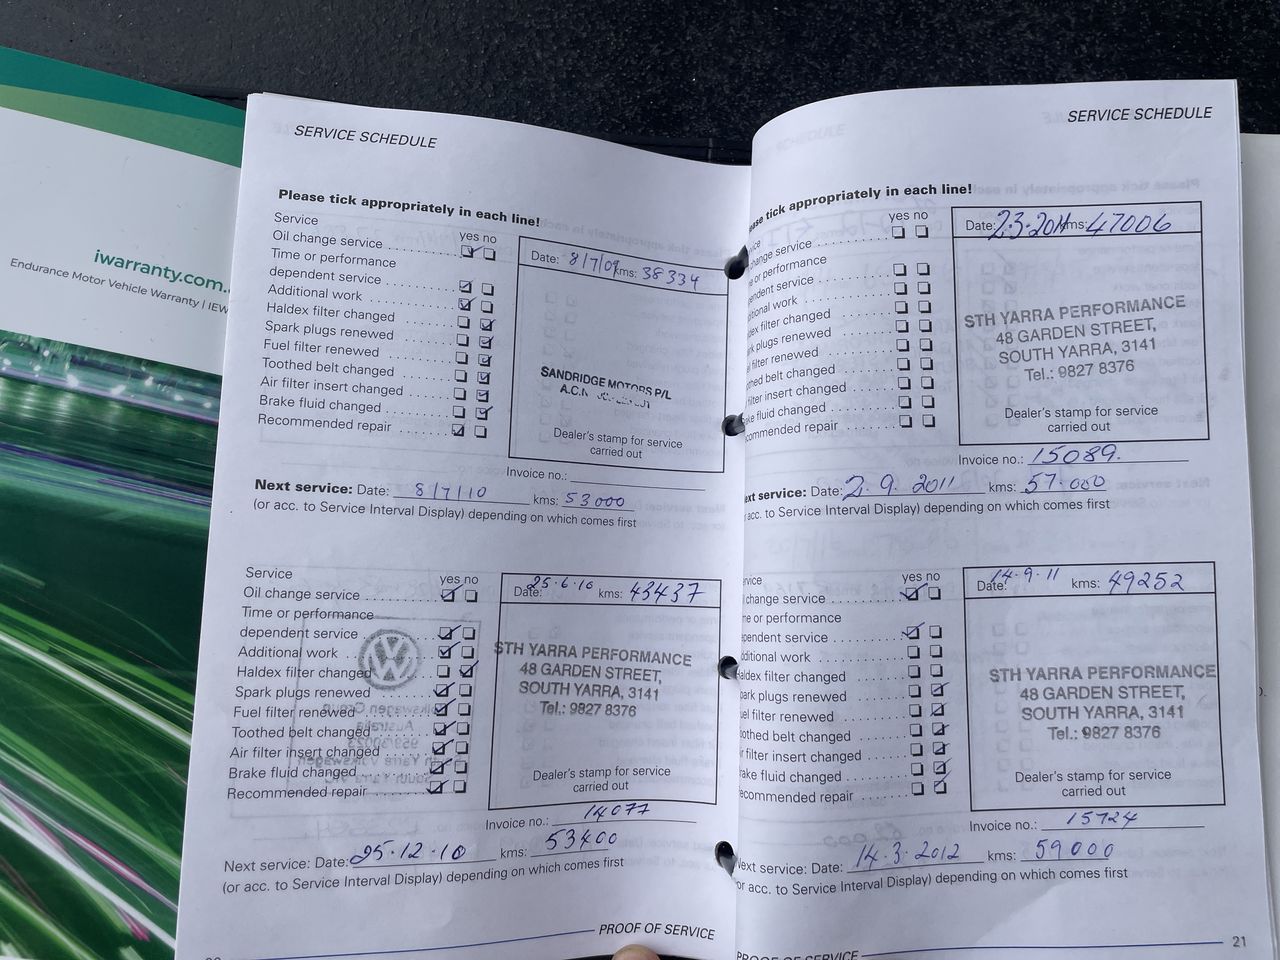 iwarranty.com.
Endurance Motor Vehicle Warranty | IEW
SERVICE SCHEDULE
Please tick appropriately in each line!
Service
yes no
Oil change service
Time or performance
dependent service
Additional work
Haldex filter changed
Spark plugs renewed
Fuel filter renewed
Toothed belt changed
Air filter insert changed
Brake fluid changed
Recommended repair
Date: 8/7/09 kms: 38334
SANDRIDGE MOTORS P/L
A.C.N
Dealer's stamp for service
carried out
Invoice no.:
Next service: Date: 8/7/10 kms: 53000
(or acc. to Service Interval Display) depending on which comes first
Service
yes no
Oil change service
Time or performance
dependent service
Additional work
Haldex filter changed
Spark plugs renewed
Fuel filter renewed
Toothed belt changed
Air filter insert changed
Brake fluid changed
Recommended repair
Date: 25.6.10 kms: 43437
STH YARRA PERFORMANCE
48 GARDEN STREET,
SOUTH YARRA, 3141
Tel.: 9827 8376
Dealer's stamp for service
carried out
Invoice no.: 14077
Next service: Date: 25.12.10 kms: 53400
(or acc. to Service Interval Display) depending on which comes first
PROOF OF SERVICE
SERVICE SCHEDULE
ease tick appropriately in each line!
yes no
vice
hange service
e or performance
endent service
itional work
dex filter changed
rk plugs renewed
l filter renewed
thed belt changed
filter insert changed
ke fluid changed
commended repair
Date: 2.3.2011 kms: 47006
STH YARRA PERFORMANCE
48 GARDEN STREET,
SOUTH YARRA, 3141
Tel.: 9827 8376
Dealer's stamp for service
carried out
Invoice no.: 15089.
ext service: Date: 2.9.2011 kms: 57.000
r acc. to Service Interval Display) depending on which comes first
rvice
yes no
il change service
me or performance
ependent service
dditional work
Haldex filter changed
park plugs renewed
uel filter renewed
oothed belt changed
ir filter insert changed
rake fluid changed
ecommended repair
Date: 14.9.11 kms: 49252
STH YARRA PERFORMANCE
48 GARDEN STREET,
SOUTH YARRA, 3141
Tel.: 9827 8376
Dealer's stamp for service
carried out
Invoice no.: 15724
Next service: Date: 14.3.2012 kms: 59000
or acc. to Service Interval Display) depending on which comes first
PROOF OF SERVICE
21